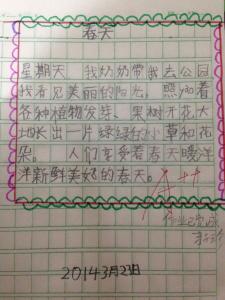 春天
星期天 我奶奶带我去公园
我看见美丽的阳光，照yào着
各种植物发芽、果树开花大
地长出一片绿绿的小草和花
朵。 人们享受着春天暖洋
洋新鲜美好的春天。
作业已完成
2014年3月23日